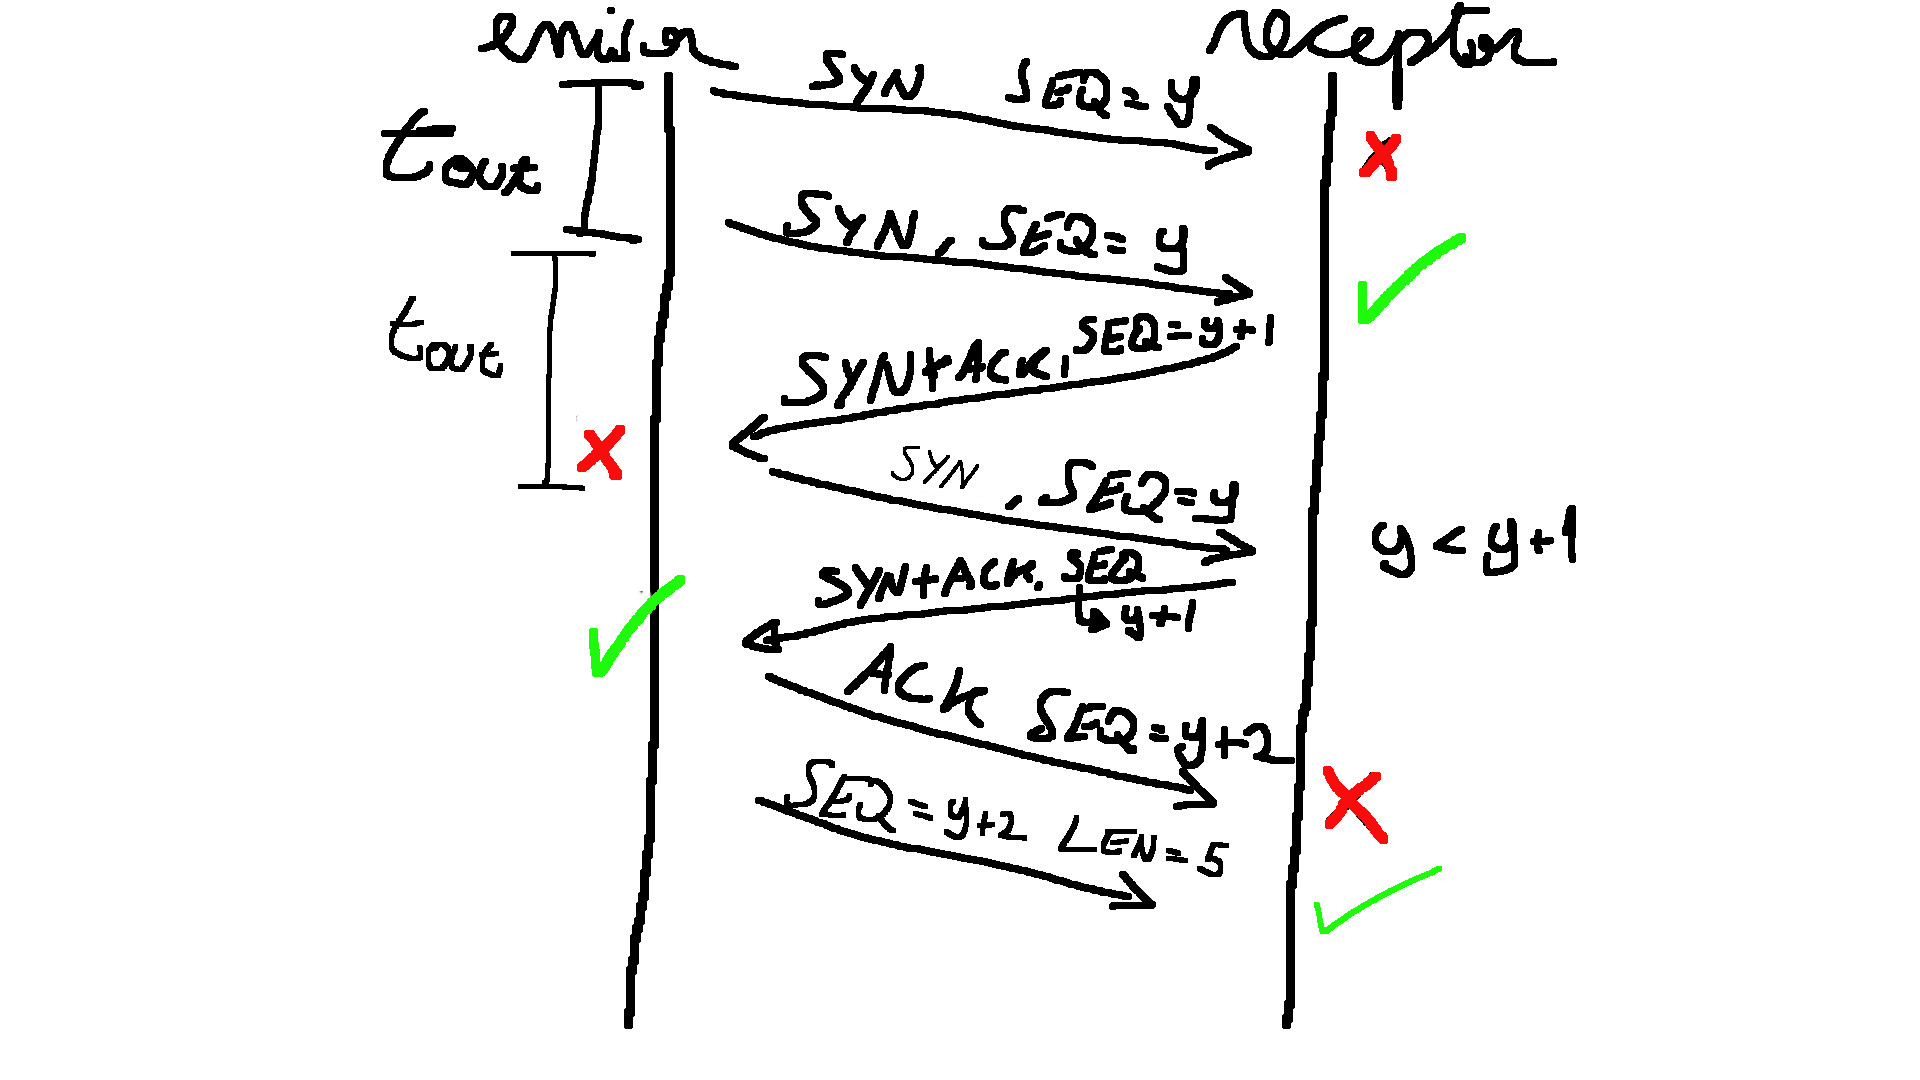 emisor receptor
SYN SEQ=y
tout
SYN, SEQ=y
tout
SYN+ACK, SEQ=y+1
SYN, SEQ=y
y < y+1
SYN+ACK. SEQ
y+1
ACK SEQ=y+2
SEQ=y+2 LEN=5